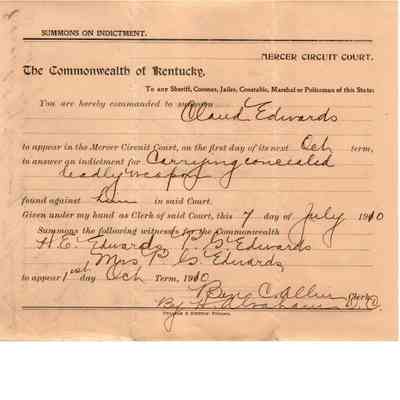 SUMMONS ON INDICTMENT.
MERCER CIRCUIT COURT.
The Commonwealth of Kentucky,
To any Sheriff, Coroner, Jailer, Constable, Marshal or Policeman of this State:
You are hereby commanded to summon
Claud Edwards
to appear in the Mercer Circuit Court, on the first day of its next Och term,
to answer an indictment for Carrying concealed
deadly weapon
found against him in said Court.
Given under my hand as Clerk of said Court, this 7 day of July 1910
Summons the following witnesses for the Commonwealth
H. E. Edwards, P. G. Edwards
Mrs P. G. Edwards
to appear 1st day Och Term, 1910
Ben C. Allen Clerk
By D. C.